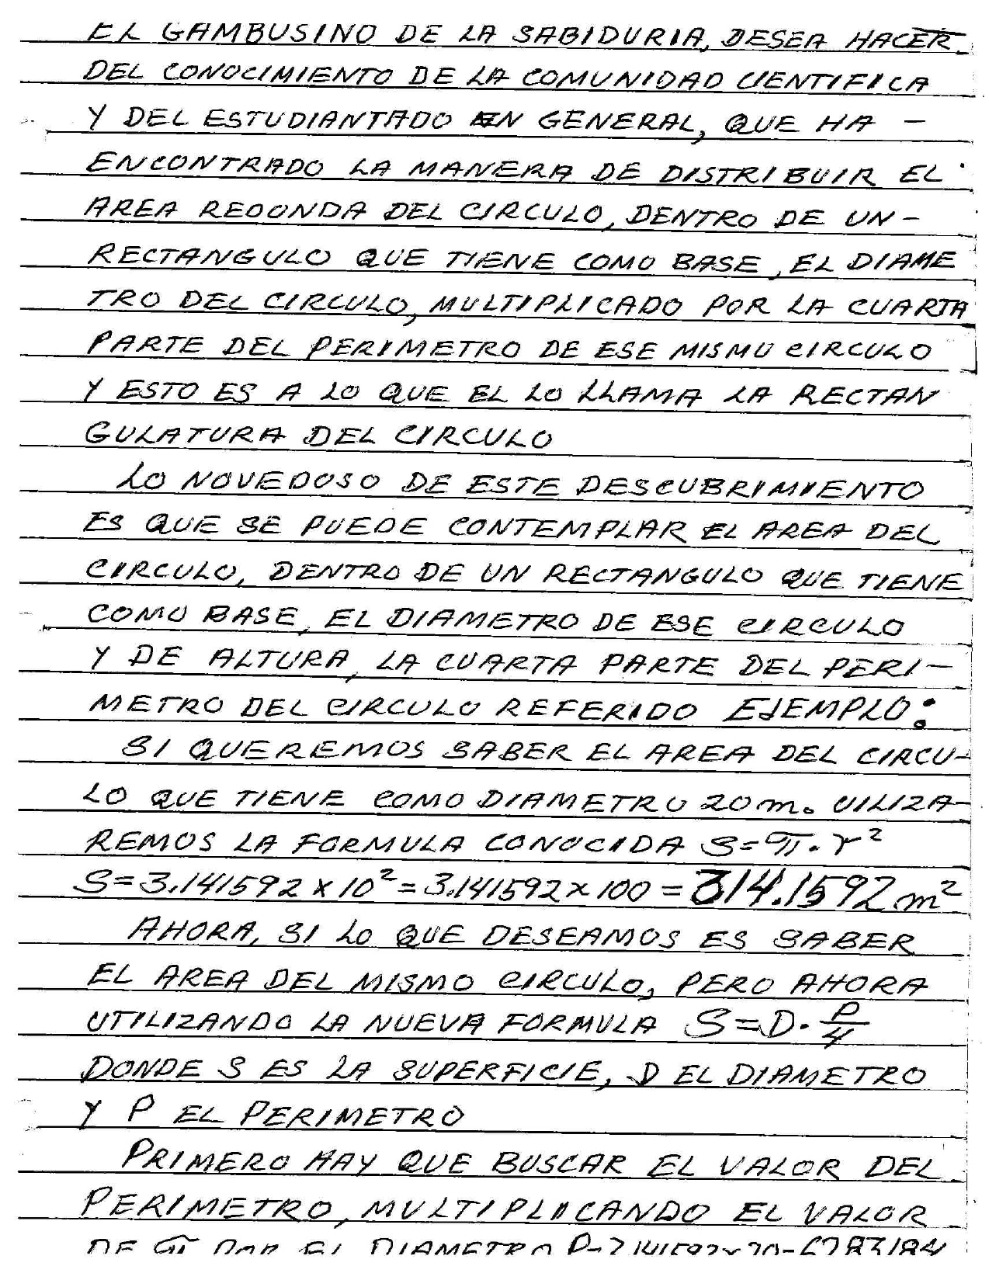 EL GAMBUSINO DE LA SABIDURIA, DESEA HACER
DEL CONOCIMIENTO DE LA COMUNIDAD CIENTIFICA
Y DEL ESTUDIANTADO EN GENERAL, QUE HA -
ENCONTRADO LA MANERA DE DISTRIBUIR EL
AREA REDONDA DEL CIRCULO, DENTRO DE UN -
RECTANGULO QUE TIENE COMO BASE, EL DIAME
TRO DEL CIRCULO, MULTIPLICADO POR LA CUARTA
PARTE DEL PERIMETRO DE ESE MISMO CIRCULO
Y ESTO ES A LO QUE EL LO LLAMA LA RECTAN
GULATURA DEL CIRCULO
LO NOVEDOSO DE ESTE DESCUBRIMIENTO
ES QUE SE PUEDE CONTEMPLAR EL AREA DEL
CIRCULO, DENTRO DE UN RECTANGULO QUE TIENE
COMO BASE, EL DIAMETRO DE ESE CIRCULO
Y DE ALTURA, LA CUARTA PARTE DEL PERI-
METRO DEL CIRCULO REFERIDO EJEMPLO:
SI QUEREMOS SABER EL AREA DEL CIRCU-
LO QUE TIENE COMO DIAMETRO 20 m. UILIZA-
REMOS LA FORMULA CONOCIDA S=π·r²
S=3.141592 x 10² = 3.141592 x 100 = 314.1592 m²
AHORA, SI LO QUE DESEAMOS ES SABER
EL AREA DEL MISMO CIRCULO, PERO AHORA
UTILIZANDO LA NUEVA FORMULA S=D·P/4
DONDE S ES LA SUPERFICIE, D EL DIAMETRO
Y P EL PERIMETRO
PRIMERO HAY QUE BUSCAR EL VALOR DEL
PERIMETRO, MULTIPLICANDO EL VALOR
DE π POR EL DIAMETRO